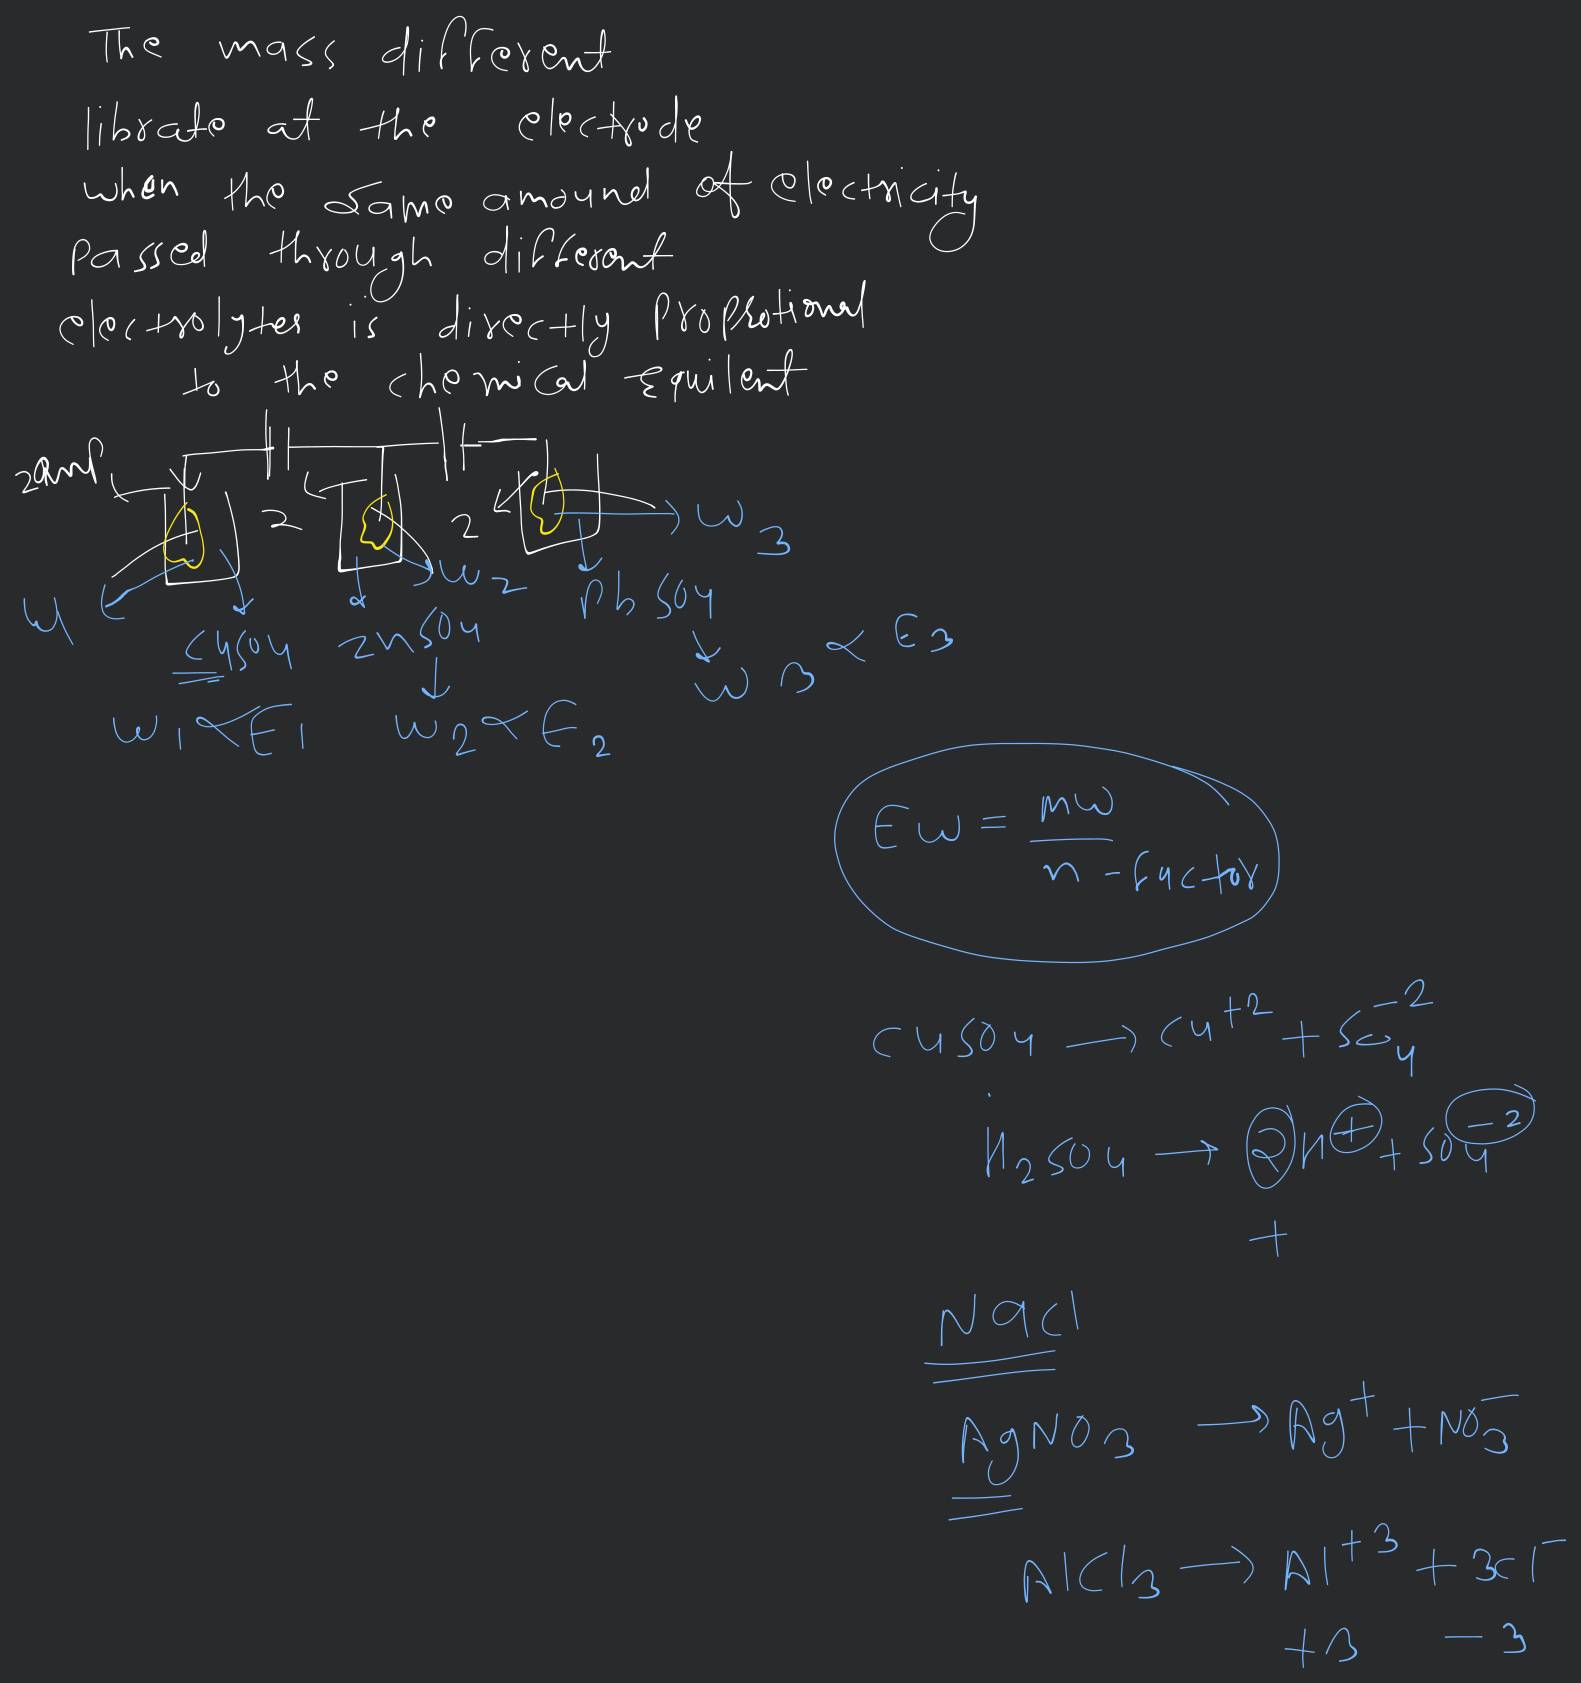 The mass different
librate at the electrode
when the same amound of electricity
passed through different
electrolytes is directly proprotional
to the chemical Equilent
2amp
2 2
W3
W2
W1
CuSO4 ZnSO4 PbSO4
W1 ∝ E1 W2 ∝ E2 W3 ∝ E3
EW = mw / n-factor
CuSO4 → Cu+2 + SO4-2
H2SO4 → 2H+ + SO4-2
+
NaCl
AgNO3 → Ag+ + NO3-
AlCl3 → Al+3 + 3Cl-
+3 -3